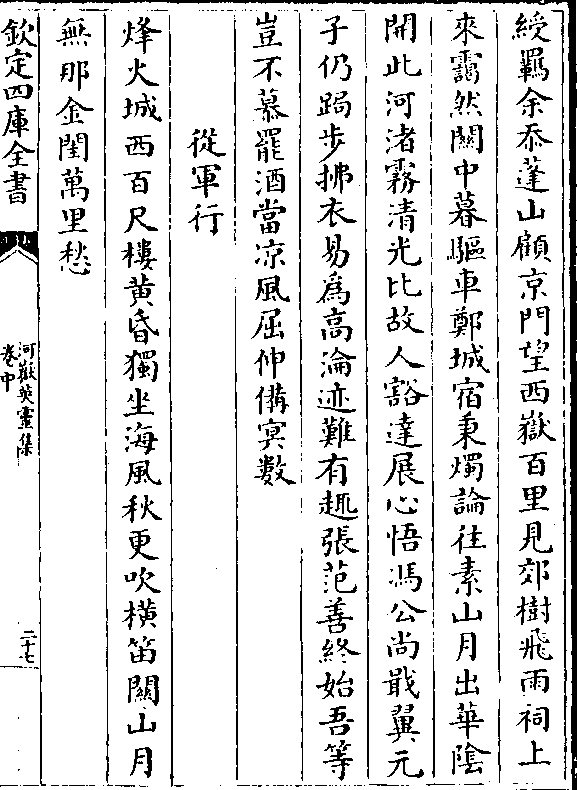 綬羈余忝蓬山顧京門望西嶽百里見郊樹飛雨祠上
來靄然關中暮驅車鄭城宿秉燭論往素山月出華陰
開此河渚霧清光比故人豁達展心悟馮公尚戢翼元
子仍跼步拂衣易為高淪迹難有趣張范善終始吾等
豈不慕罷酒當凉風屈伸備冥數
從軍行
烽火城西百尺樓黄昏獨坐海風秋更吹横笛關山月
無那金閨萬里愁
欽定四庫全書
河嶽英靈集
卷中
二十七